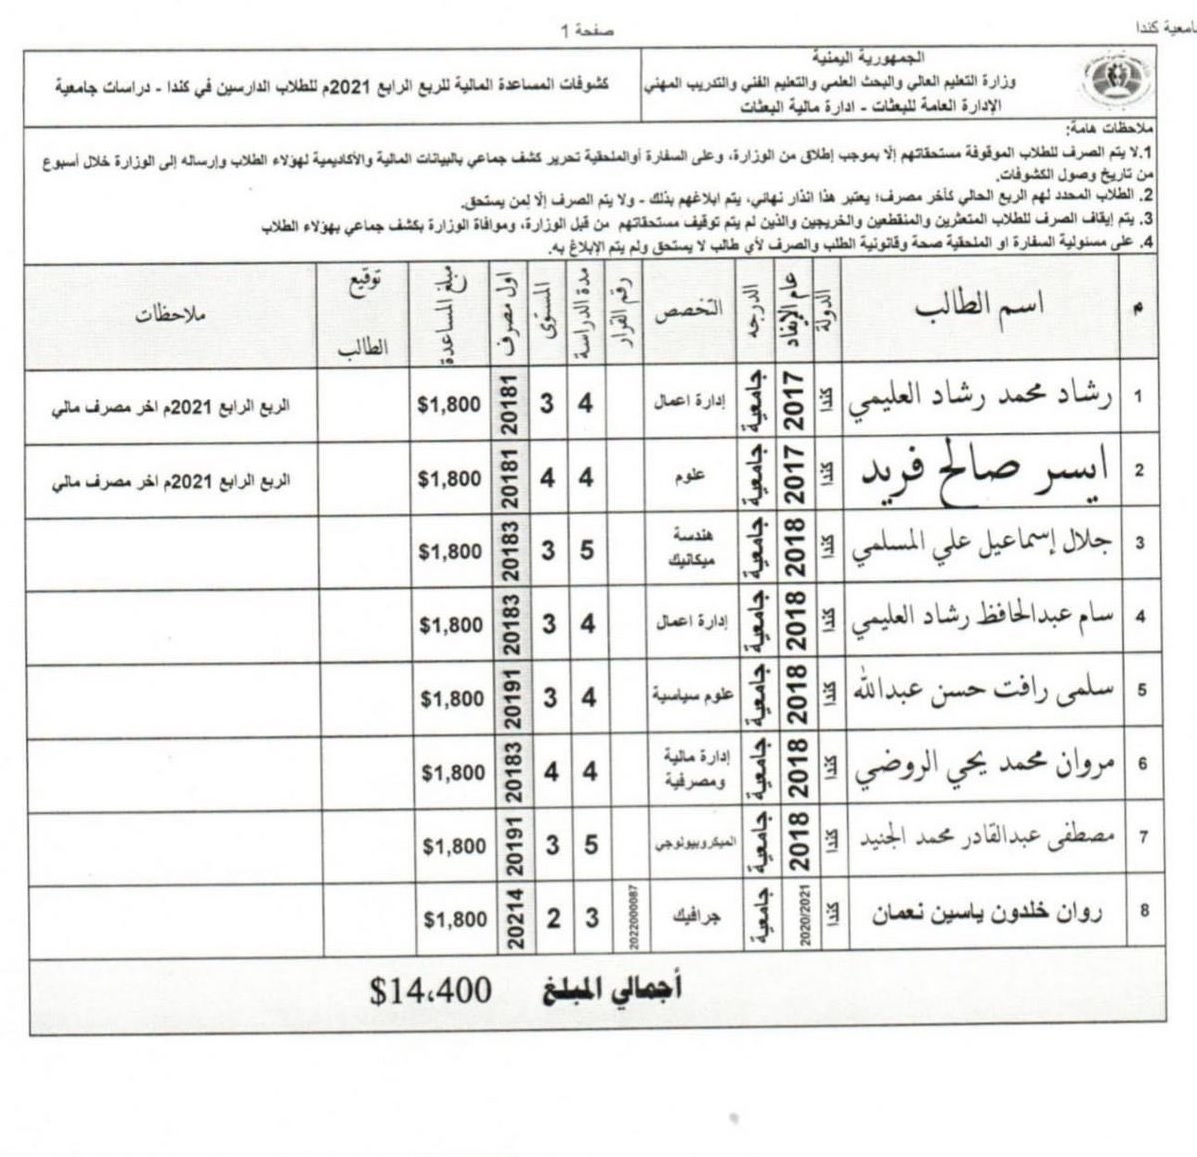 صفحة 1
جامعية كندا
الجمهورية اليمنية
وزارة التعليم العالي والبحث العلمي والتعليم الفني والتدريب المهني
الإدارة العامة للبعثات - ادارة مالية البعثات
كشوفات المساعدة المالية للربع الرابع 2021م للطلاب الدارسين في كندا - دراسات جامعية
ملاحظات هامة:
1.لا يتم الصرف للطلاب الموقوفة مستحقاتهم إلّا بموجب إطلاق من الوزارة، وعلى السفارة أوالملحقية تحرير كشف جماعي بالبيانات المالية والأكاديمية لهؤلاء الطلاب وإرساله إلى الوزارة خلال أسبوع
من تاريخ وصول الكشوفات.
2. الطلاب المحدد لهم الربع الحالي كأخر مصرف؛ يعتبر هذا انذار نهائي، يتم ابلاغهم بذلك - ولا يتم الصرف إلّا لمن يستحق.
3. يتم إيقاف الصرف للطلاب المتعثرين والمنقطعين والخريجين والذين لم يتم توقيف مستحقاتهم من قبل الوزارة، وموافاة الوزارة بكشف جماعي بهؤلاء الطلاب
4. على مسئولية السفارة او الملحقية صحة وقانونية الطلب والصرف لأي طالب لا يستحق ولم يتم الإبلاغ به.
م اسم الطالب الدولة عام الإيفاد الدرجه التخصص رقم القرار مدة الدراسة المستوى اول مصرف مبلغ المساعدة توقيع الطالب ملاحظات
1 رشاد محمد رشاد العليمي كندا 2017 جامعية إدارة اعمال 4 3 20181 $1,800 الربع الرابع 2021م اخر مصرف مالي
2 ايسر صالح فريد كندا 2017 جامعية علوم 4 4 20181 $1,800 الربع الرابع 2021م اخر مصرف مالي
3 جلال إسماعيل علي المسلمي كندا 2018 جامعية هندسة ميكانيك 5 3 20183 $1,800
4 سام عبدالحافظ رشاد العليمي كندا 2018 جامعية إدارة اعمال 4 3 20183 $1,800
5 سلمى رافت حسن عبدالله كندا 2018 جامعية علوم سياسية 4 3 20191 $1,800
6 مروان محمد يحي الروضي كندا 2018 جامعية إدارة مالية ومصرفية 4 4 20183 $1,800
7 مصطفى عبدالقادر محمد الجنيد كندا 2018 جامعية الميكروبيولوجي 5 3 20191 $1,800
8 روان خلدون ياسين نعمان كندا 2020/2021 جامعية جرافيك 2022000087 3 2 20214 $1,800
أجمالي المبلغ $14،400